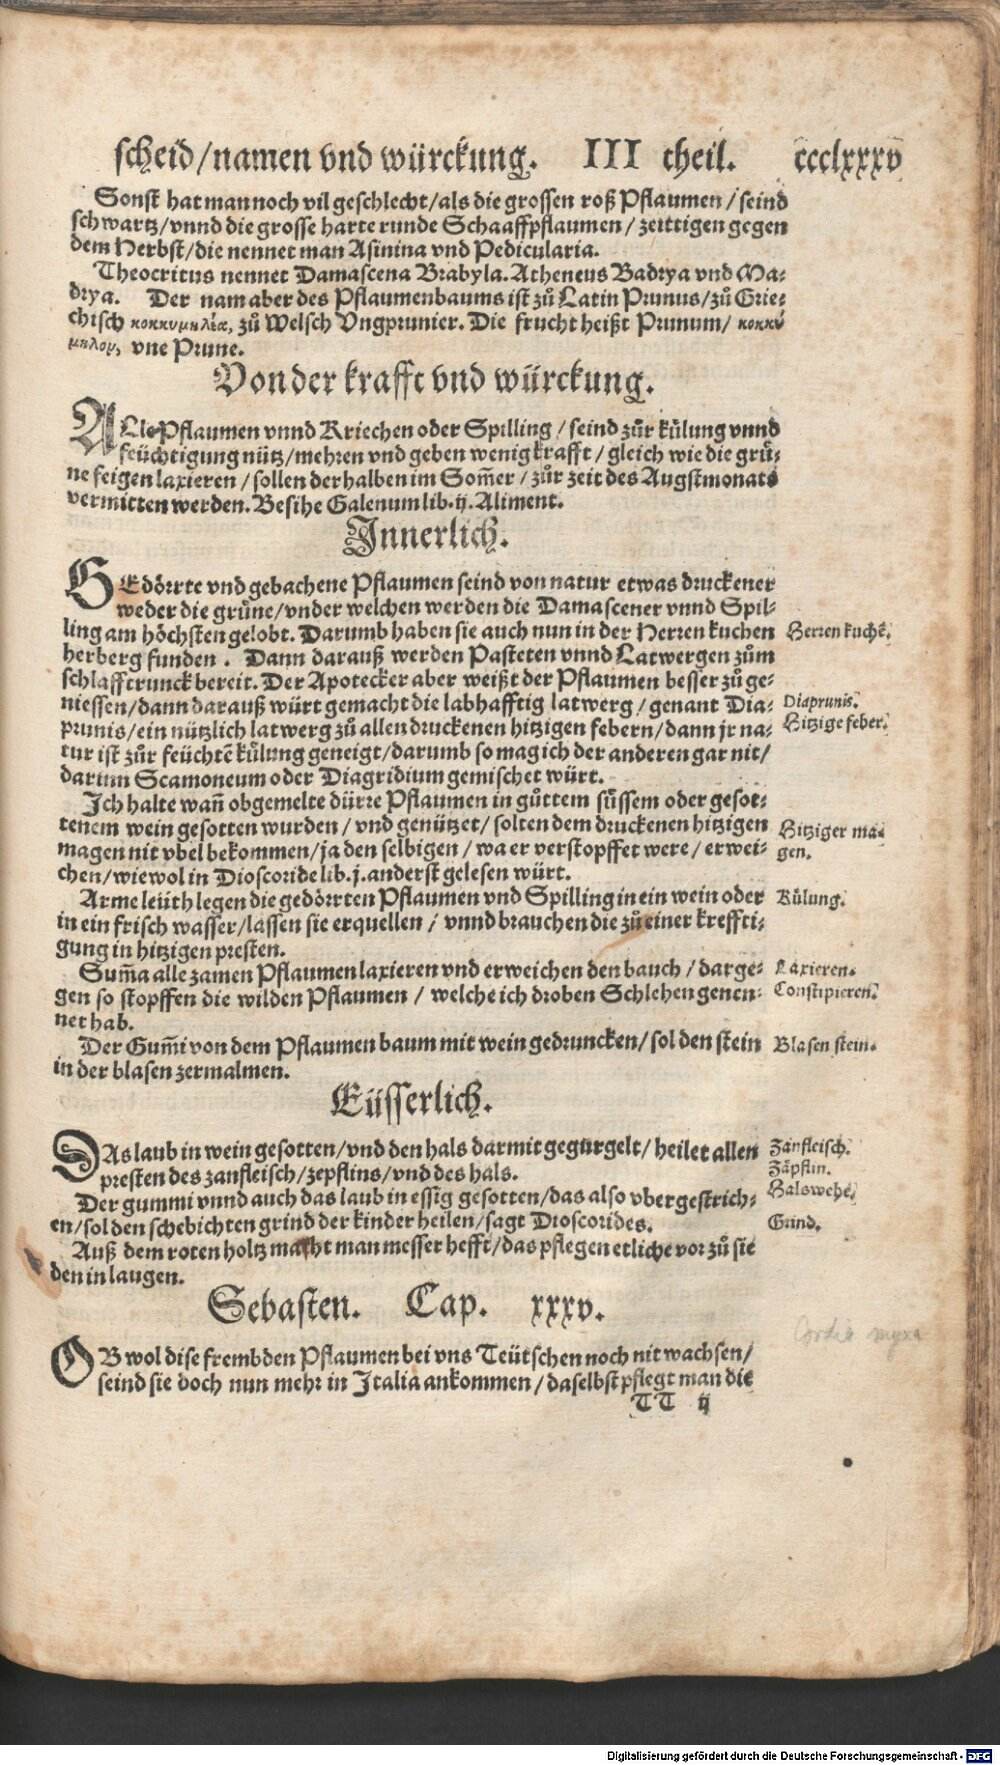 scheid/namen vnd würckung. III theil. ccclxxxv
Sonst hat man noch vil geschlecht/als die grossen roß Pflaumen/seind
schwartz/vnnd die grosse harte runde Schaaffpflaumen/zeittigen gegen
dem Herbst/die nennet man Asinina vnd Pedicularia.
Theocritus nennet Damascena Brabyla. Atheneus Badrya vnd Ma-
drya. Der nam aber des Pflaumenbaums ist zů Latin Prunus/zů Grie-
chisch κοκκυμηλέα, zů Welsch Vngprunier. Die frucht heißt Prunum/ κοκκύ
μηλον, vne Prune.
Von der krafft vnd würckung.
ALle Pflaumen vnnd Kriechen oder Spilling/seind zůr kůlung vnnd
feüchtigung nütz/mehren vnd geben wenig krafft/gleich wie die grů-
ne feigen laxieren/sollen derhalben im Som̃er/zůr zeit des Augstmonats
vermitten werden. Besihe Galenum lib. ij. Aliment.
Innerlich.
GEdörrte vnd gebachene Pflaumen seind von natur etwas druckener
weder die grůne/vnder welchen werden die Damascener vnnd Spil-
ling am höchsten gelobt. Darumb haben sie auch nun in der Herren kuchen
Herren kuchẽ.
herberg funden. Dann darauß werden Pasteten vnnd Latwergen zům
schlafftrunck bereit. Der Apotecker aber weißt der Pflaumen besser zů ge-
niessen/dann darauß würt gemacht die labhafftig latwerg/genant Dia-
Diaprunis.
prunis/ein nützlich latwerg zů allen druckenen hitzigen febern/dann jr na-
Hitzige feber.
tur ist zůr feüchtẽ kůlung geneigt/darumb so mag ich der anderen gar nit/
darinn Scamoneum oder Diagridium gemischet würt.
Ich halte wañ obgemelte dürre Pflaumen in gůttem sůssem oder gesot-
tenem wein gesotten wurden/vnd genützet/solten dem druckenen hitzigen
Hitziger ma-
magen nit vbel bekommen/ja den selbigen/wa er verstopffet were/erwei-
gen.
chen/wiewol in Dioscoride lib. j. anderst gelesen würt.
Arme leüth legen die gedörrten Pflaumen vnd Spilling in ein wein oder
Kůlung.
in ein frisch wasser/lassen sie erquellen/vnnd brauchen die zů einer kreffti-
gung in hitzigen presten.
Sum̃a alle zamen Pflaumen laxieren vnd erweichen den bauch/darge-
Laxieren.
gen so stopffen die wilden Pflaumen/welche ich droben Schlehen genen-
Constipieren.
net hab.
Der Gum̃i von dem Pflaumen baum mit wein gedruncken/sol den stein
Blasen stein.
in der blasen zermalmen.
Eüsserlich.
DAs laub in wein gesotten/vnd den hals darmit gegurgelt/heilet allen
Zanfleisch.
presten des zanfleisch/zepflins/vnd des hals.
Zäpflin.
Der gummi vnnd auch das laub in essig gesotten/das also vbergestrich-
Halswehe.
en/sol den schebichten grind der kinder heilen/sagt Dioscorides.
Grind.
Auß dem roten holtz macht man messer hefft/das pflegen etliche vor zů sie
den in laugen.
Sebasten. Cap. xxxv.
OB wol dise frembden Pflaumen bei vns Teütschen noch nit wachsen/
seind sie doch nun mehr in Italia ankommen/daselbst pflegt man die
TT ij
Cordia myxa
Digitalisierung gefördert durch die Deutsche Forschungsgemeinschaft - DFG